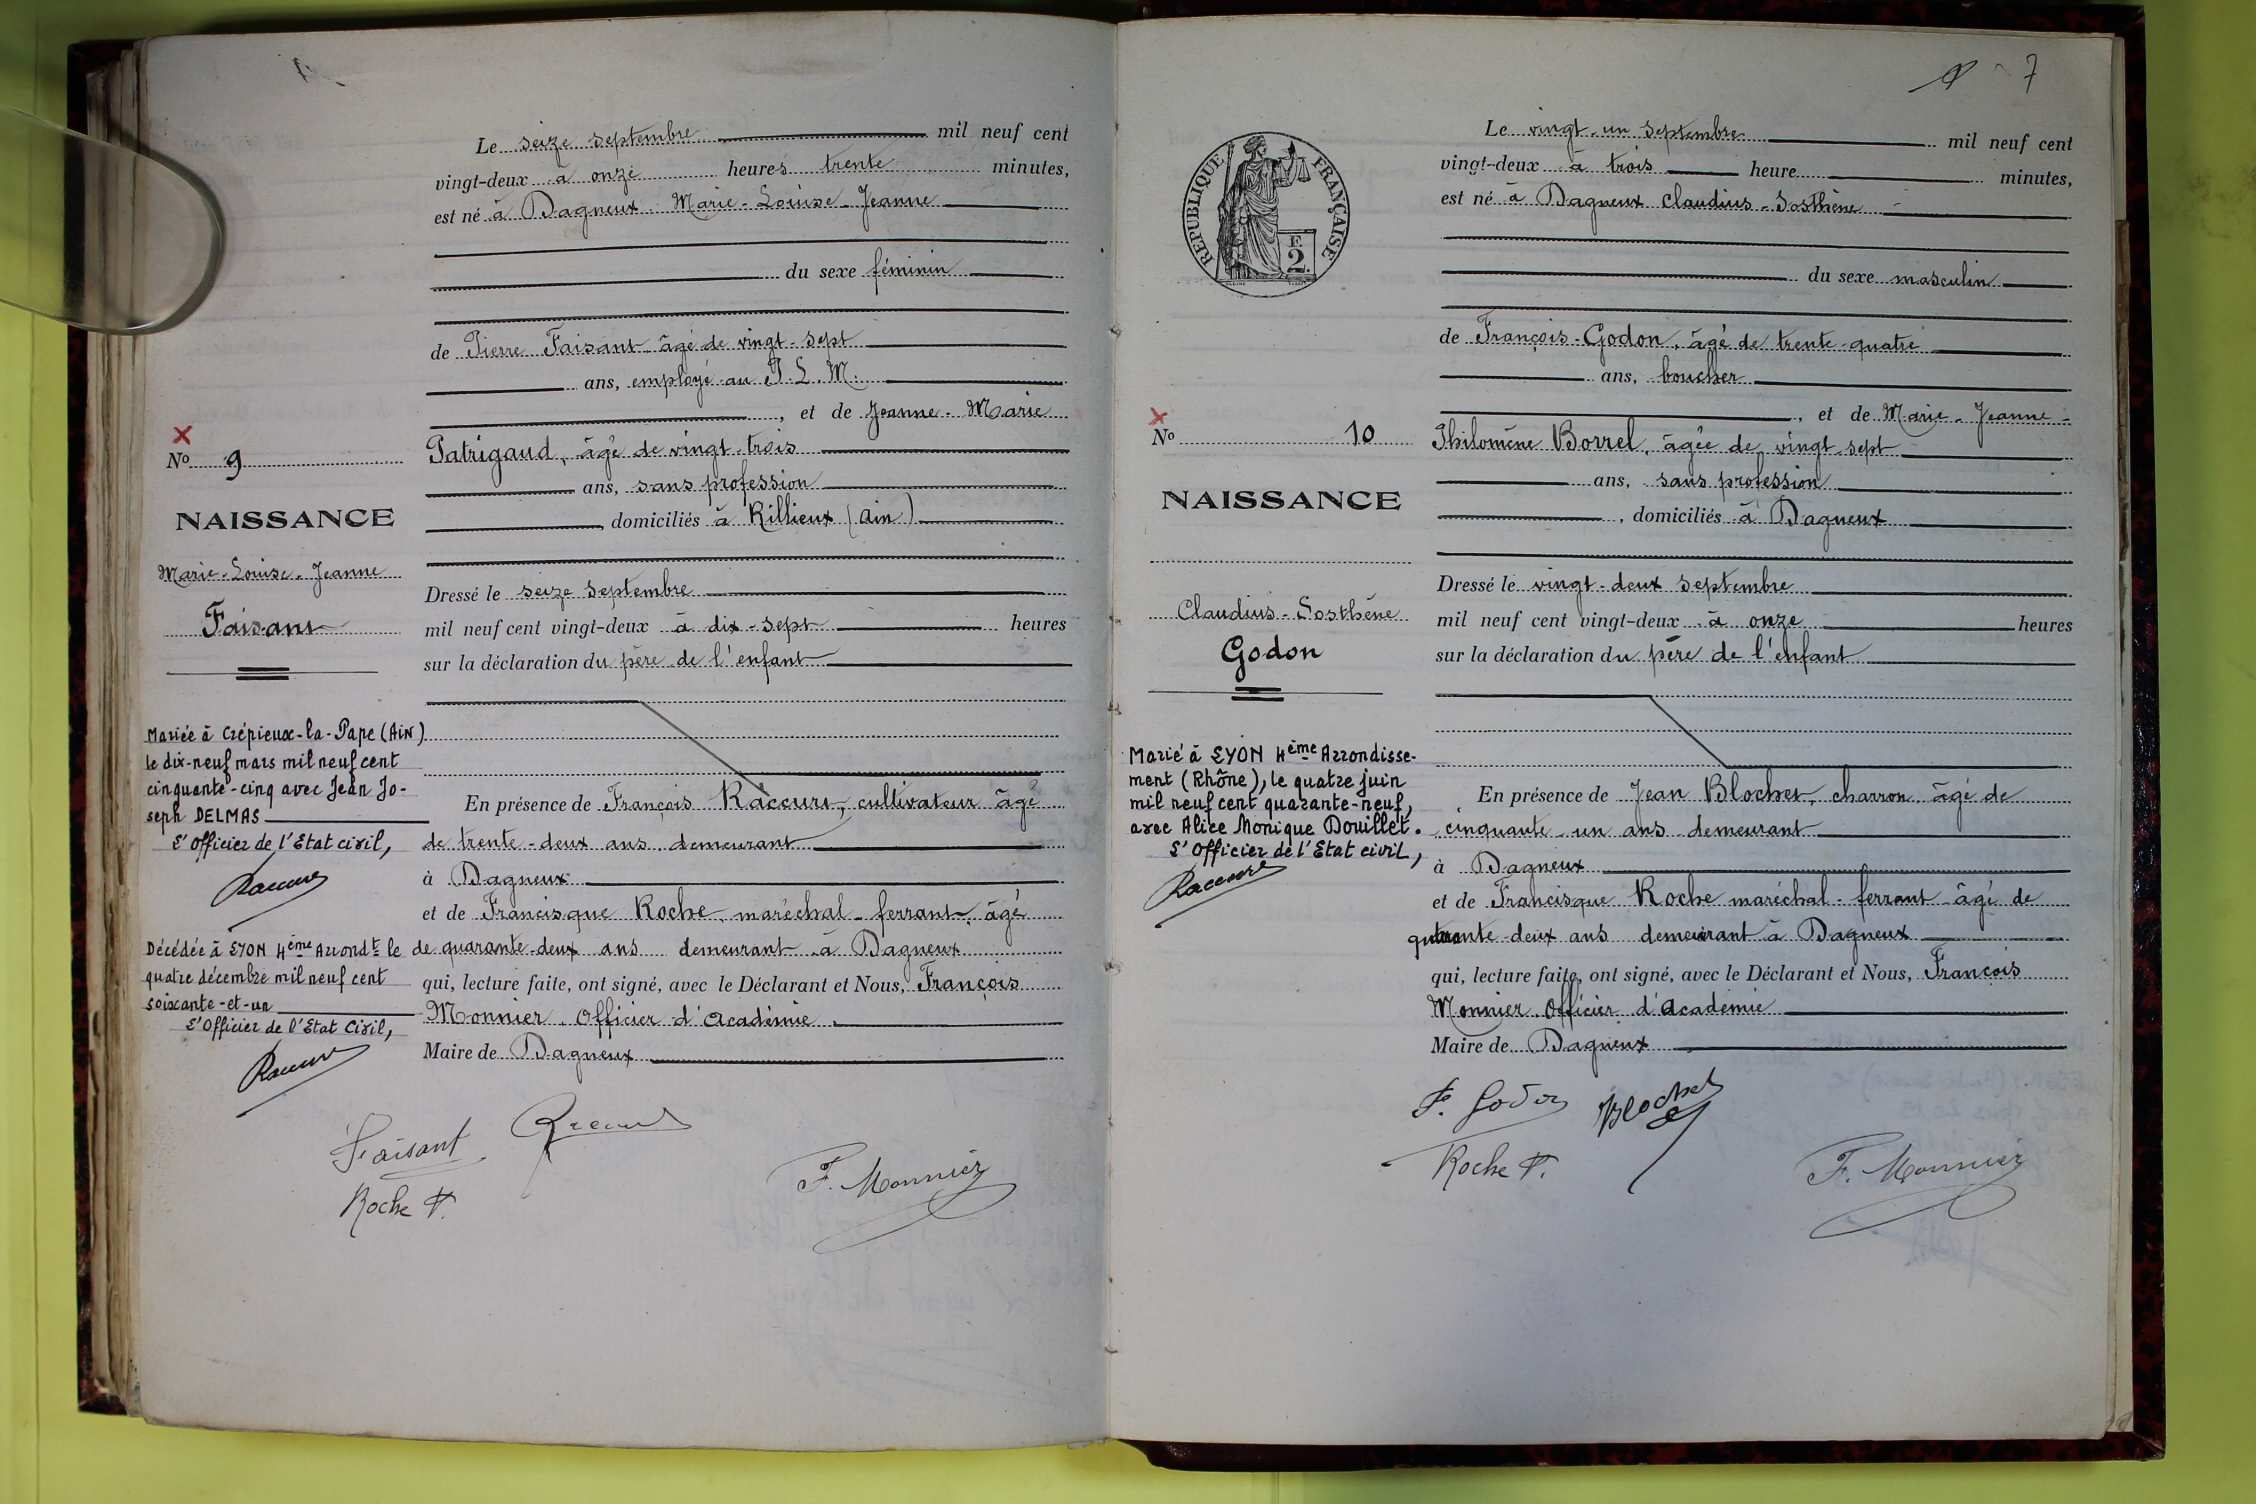 Le seize septembre mil neuf cent
vingt-deux à onze heures trente minutes,
est né à Dagneux Marie-Louise-Jeanne
du sexe féminin
de Pierre Faisant âgé de vingt-sept
ans, employé au P.L.M.
, et de Jeanne-Marie
Patrigaud, âgé de vingt-trois
ans, sans profession
domiciliés à Rillieux (ain)
Dressé le seize septembre
mil neuf cent vingt-deux à dix-sept heures
sur la déclaration du père de l'enfant
En présence de François Raccurt, cultivateur âgé
de trente-deux ans demeurant
à Dagneux
et de Francisque Roche maréchal-ferrant, âgé
de quarante-deux ans demeurant à Dagneux
qui, lecture faite, ont signé, avec le Déclarant et Nous, François
Monnier, Officier d'académie,
Maire de Dagneux
No 9
NAISSANCE
Marie-Louise-Jeanne
Faisant
Mariée à Crépieux-la-Pape (Ain)
le dix-neuf mars mil neuf cent
cinquante-cinq avec Jean Jo-
seph DELMAS
L'Officier de l'Etat civil,
Raccurt
Décédée à LYON 4ème Arrondt le
quatre décembre mil neuf cent
soixante-et-un
L'Officier de l'Etat Civil,
Raccurt
Faisant
Raccurt
Roche F.
F. Monnier
7
REPUBLIQUE FRANÇAISE
E
2
Le vingt-un septembre mil neuf cent
vingt-deux à trois heure minutes,
est né à Dagneux Claudius-Sosthène
du sexe masculin
de François-Godon, âgé de trente-quatre
ans, boucher
, et de Marie-Jeanne-
Philomène Borrel, âgée de vingt-sept
ans, sans profession
, domiciliés à Dagneux
Dressé le vingt-deux septembre
mil neuf cent vingt-deux à onze heures
sur la déclaration du père de l'enfant
En présence de Jean Blochet, charron âgé de
cinquante-un ans demeurant
à Dagneux
et de Francisque Roche maréchal-ferrant âgé de
quarante-deux ans demeurant à Dagneux
qui, lecture faite, ont signé, avec le Déclarant et Nous, François
Monnier Officier d'académie
Maire de Dagneux
No 10
NAISSANCE
Claudius-Sosthène
Godon
Marié à LYON 4ème Arrondisse-
ment (Rhône), le quatre juin
mil neuf cent quarante-neuf,
avec Alice Monique Douillet.
L'Officier de l'Etat civil,
Raccurt
F. Godon
Blochet
Roche F.
F. Monnier